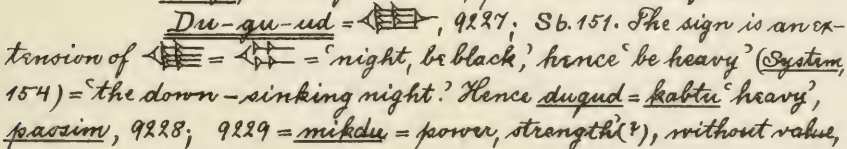 Du-gu-ud = 𒂂, 9227; Sb. 151. The sign is an ex-
tension of = = 'night, be black,' hence 'be heavy' (System,
154) = 'the down-sinking night.' Hence dugud = kabtu 'heavy',
passim, 9228; 9229 = mikdu = power, strength'(?), without value,